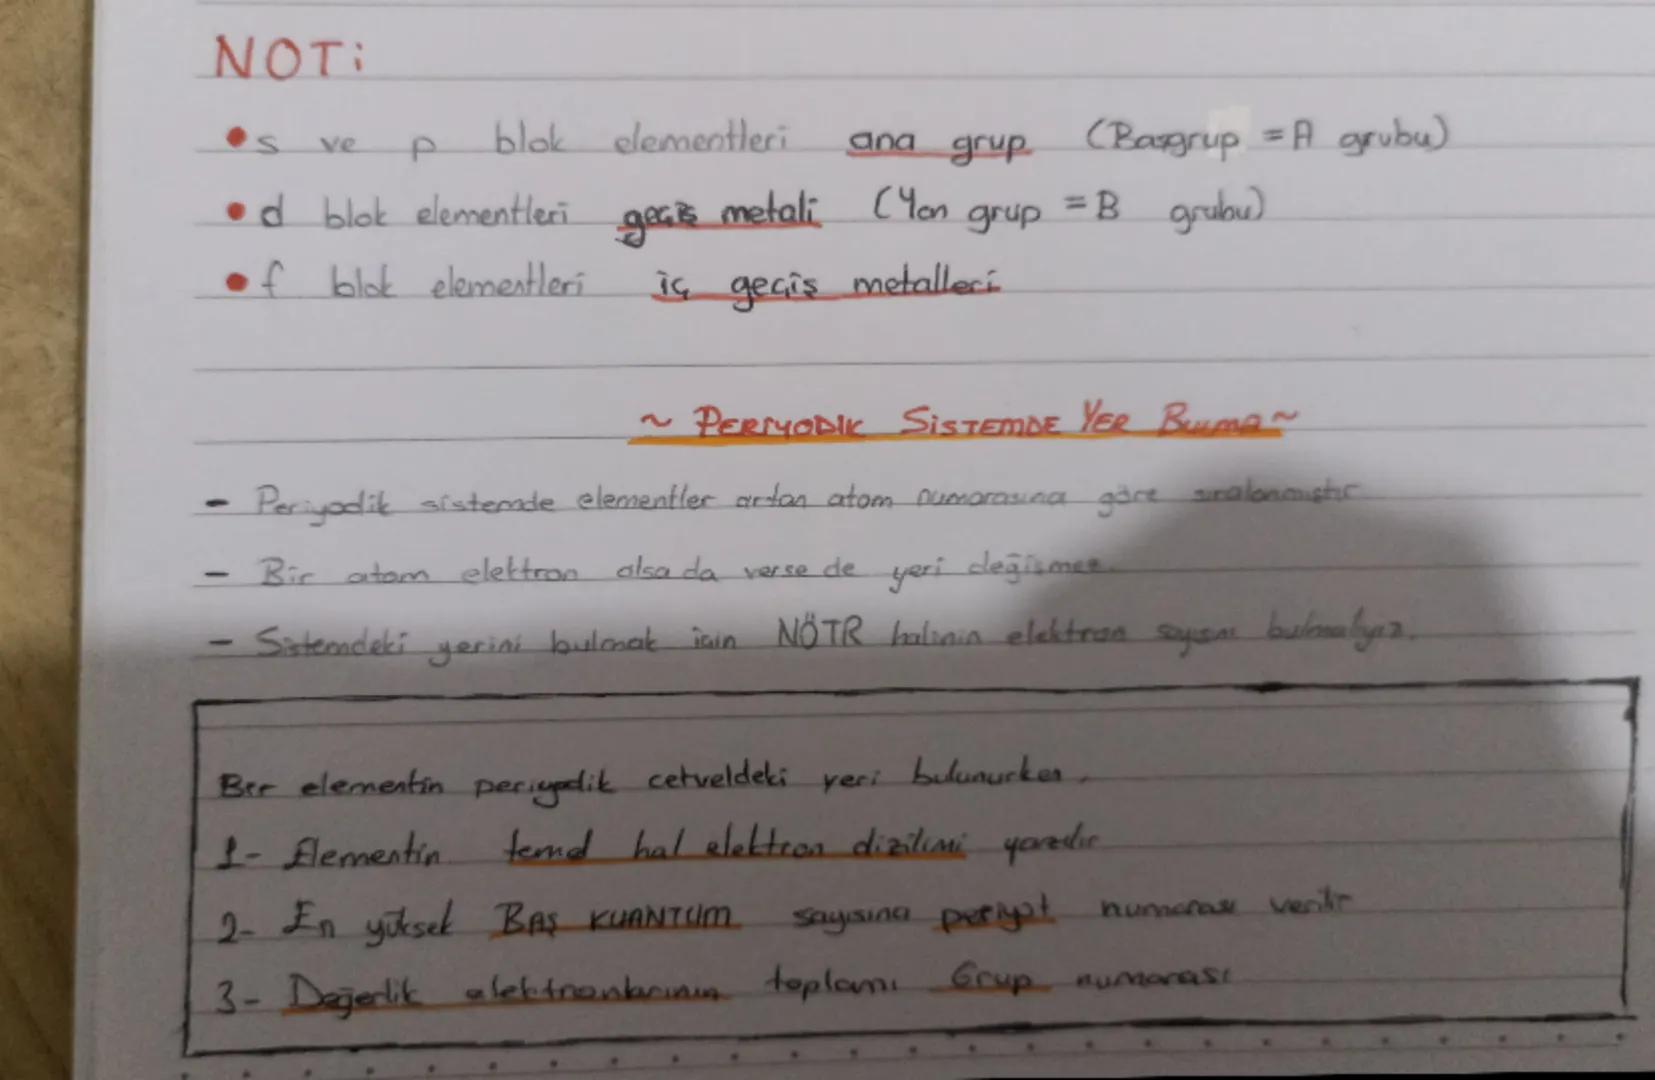 NOT:
• s ve p blok elementleri ana grup (Başgrup = A grubu)
• d blok elementleri geçiş metali (Yan grup = B grubu)
• f blok elementleri iç geçiş metalleri
~ PERİYODİK SİSTEMDE YER BULMA ~
- Periyodik sistemde elementler artan atom numarasına göre sıralanmıştır
- Bir atom elektron alsa da verse de yeri değişmez.
- Sistemdeki yerini bulmak için NÖTR halinin elektron sayısını bulmalıyız.
Bir elementin periyodik cetveldeki yeri bulunurken,
1- Elementin temel hal elektron dizilimi yazılır
2- En yüksek BAŞ KUANTUM sayısına periyot numarası verilir
3- Değerlik elektronlarının toplamı Grup numarası